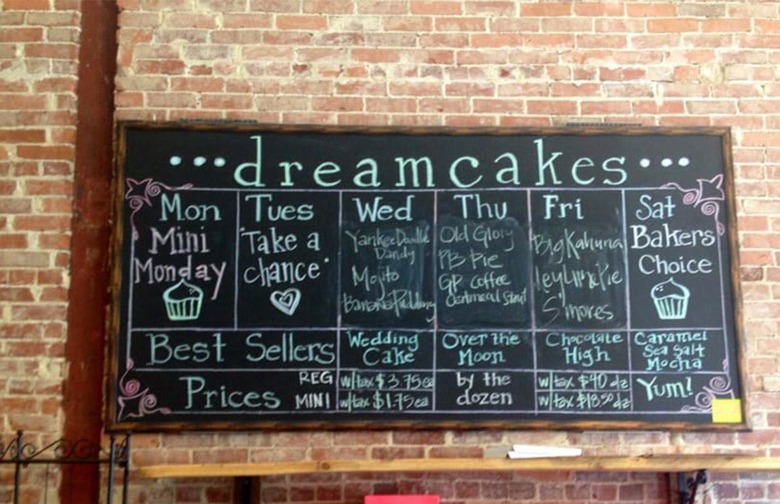 ...dreamcakes...
Mon
Mini
Monday
Tues
"Take a
chance"
Wed
Yankee Doodle
Dandy
Mojito
Banana Pudding
Thu
Old Glory
PB Pie
GP Coffee
Oatmeal Stout
Fri
Big Kahuna
Key Lime Pie
S'mores
Sat
Bakers
Choice
Best Sellers
Wedding
Cake
Over the
Moon
Chocolate
High
Caramel
Sea Salt
Mocha
Prices
REG
MINI
w/tax $3.75 ea
w/tax $1.75 ea
by the
dozen
w/tax $40 dz
w/tax $18.50 dz
Yum!